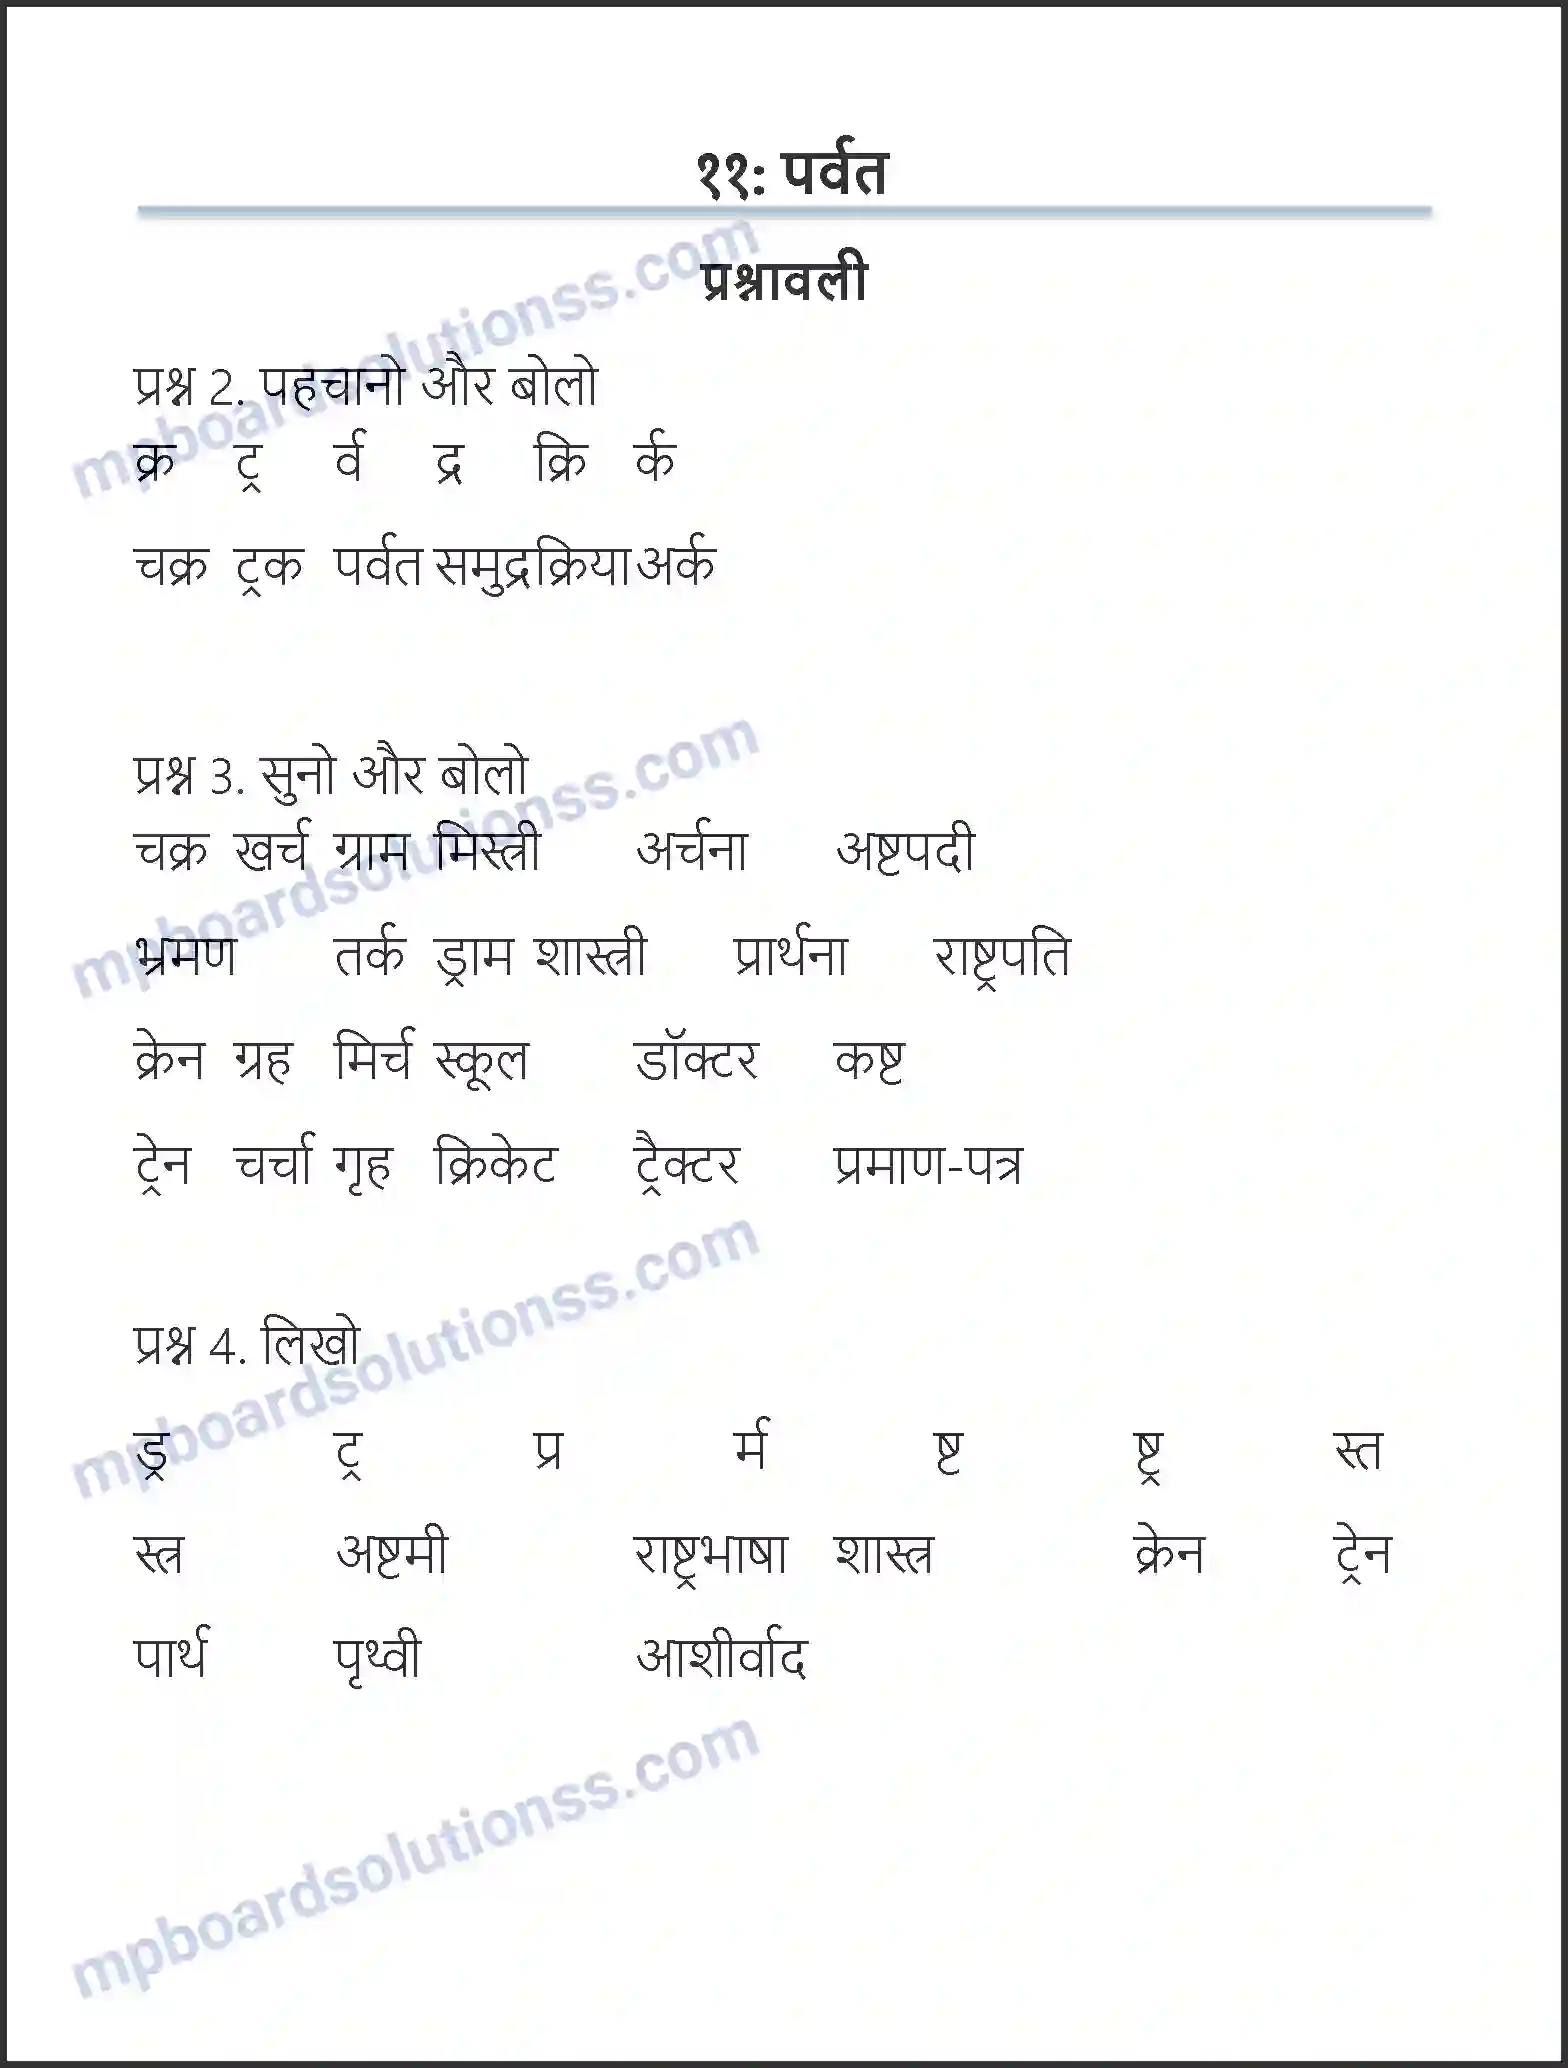 ११: पर्वत
प्रश्नावली
प्रश्न 2. पहचानो और बोलो
क्र ट्र र्व द्र क्रि र्क
चक्र ट्रक पर्वत समुद्र क्रिया अर्क
प्रश्न 3. सुनो और बोलो
चक्र खर्च ग्राम मिस्त्री अर्चना अष्टपदी
भ्रमण तर्क ड्राम शास्त्री प्रार्थना राष्ट्रपति
क्रेन ग्रह मिर्च स्कूल डॉक्टर कष्ट
ट्रेन चर्चा गृह क्रिकेट ट्रैक्टर प्रमाण-पत्र
प्रश्न 4. लिखो
ड्र ट्र प्र र्म ष्ट ष्ट्र स्त
स्त्र अष्टमी राष्ट्रभाषा शास्त्र क्रेन ट्रेन
पार्थ पृथ्वी आशीर्वाद
mpboardsolutionss.com
mpboardsolutionss.com
mpboardsolutionss.com
mpboardsolutionss.com